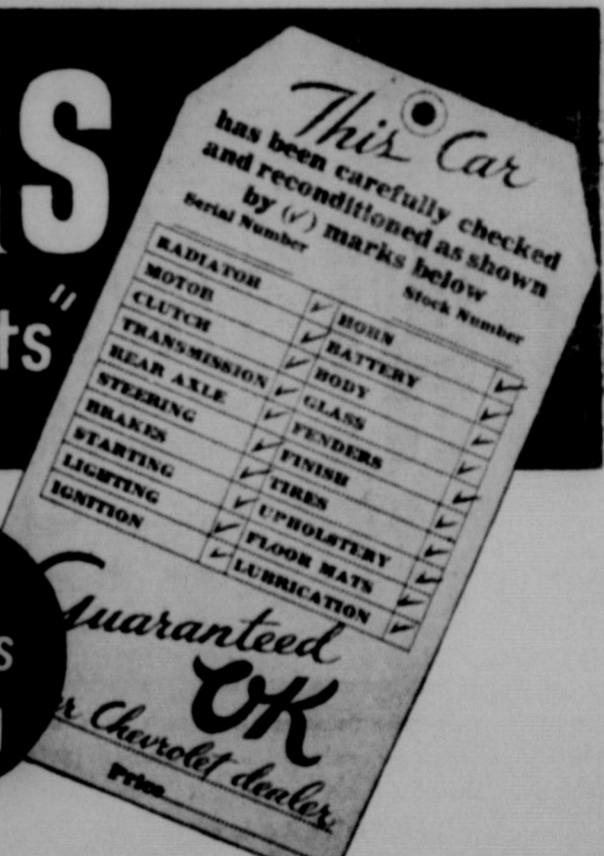 S
ts"
This Car
has been carefully checked
and reconditioned as shown
by (✓) marks below
Serial Number
Stock Number
RADIATOR ✓ HORN ✓
MOTOR ✓ BATTERY ✓
CLUTCH ✓ BODY ✓
TRANSMISSION ✓ GLASS ✓
REAR AXLE ✓ FENDERS ✓
STEERING ✓ FINISH ✓
BRAKES ✓ TIRES ✓
STARTING ✓ UPHOLSTERY ✓
LIGHTING ✓ FLOOR MATS ✓
IGNITION ✓ LUBRICATION ✓
Guaranteed
OK
s
r Chevrolet dealer
Price